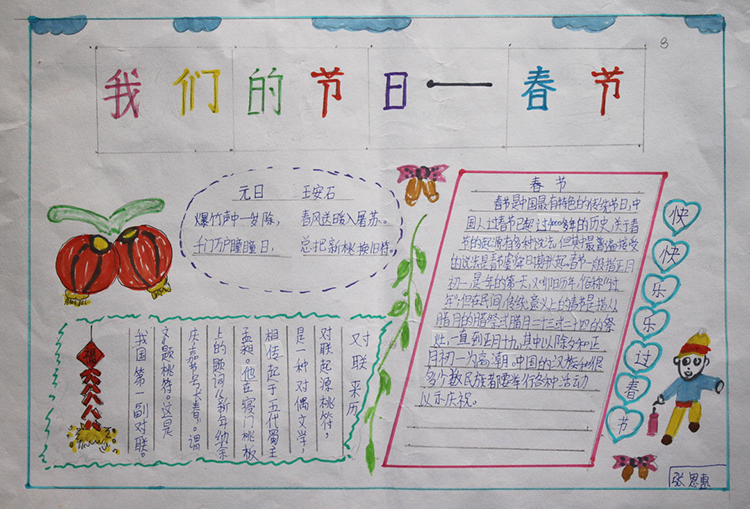 8
我们的节日——春节
元日 王安石
爆竹声中一岁除, 春风送暖入屠苏。
千门万户曈曈日, 总把新桃换旧符。
春节
春节是中国最有特色的传统节日,中
国人过春节已超过4000多年的历史,关于春
节的起源有多种说法,但其中最普遍接受
的说法是春节虞舜期兴起。春节一般指正月
初一,是年的第一天,又叫阴历年,俗称"过
年"。但在民间,传统意义上的春节是指从
腊月的腊祭或腊月二十三或二十四的祭
灶,一直到正月十九,其中以除夕和正
月初一为高潮。中国的汉族和很
多少数民族都要举行各种活动
以示庆祝。
快快乐乐过春节
对联来历
对联起源桃符,
是一种对偶文学,
相传起于五代蜀主
孟昶。他在寝门桃板
上的题词《新年纳余
庆,嘉节号长春》。谓
文"题桃符"。这是
我国第一副对联。
张思惠